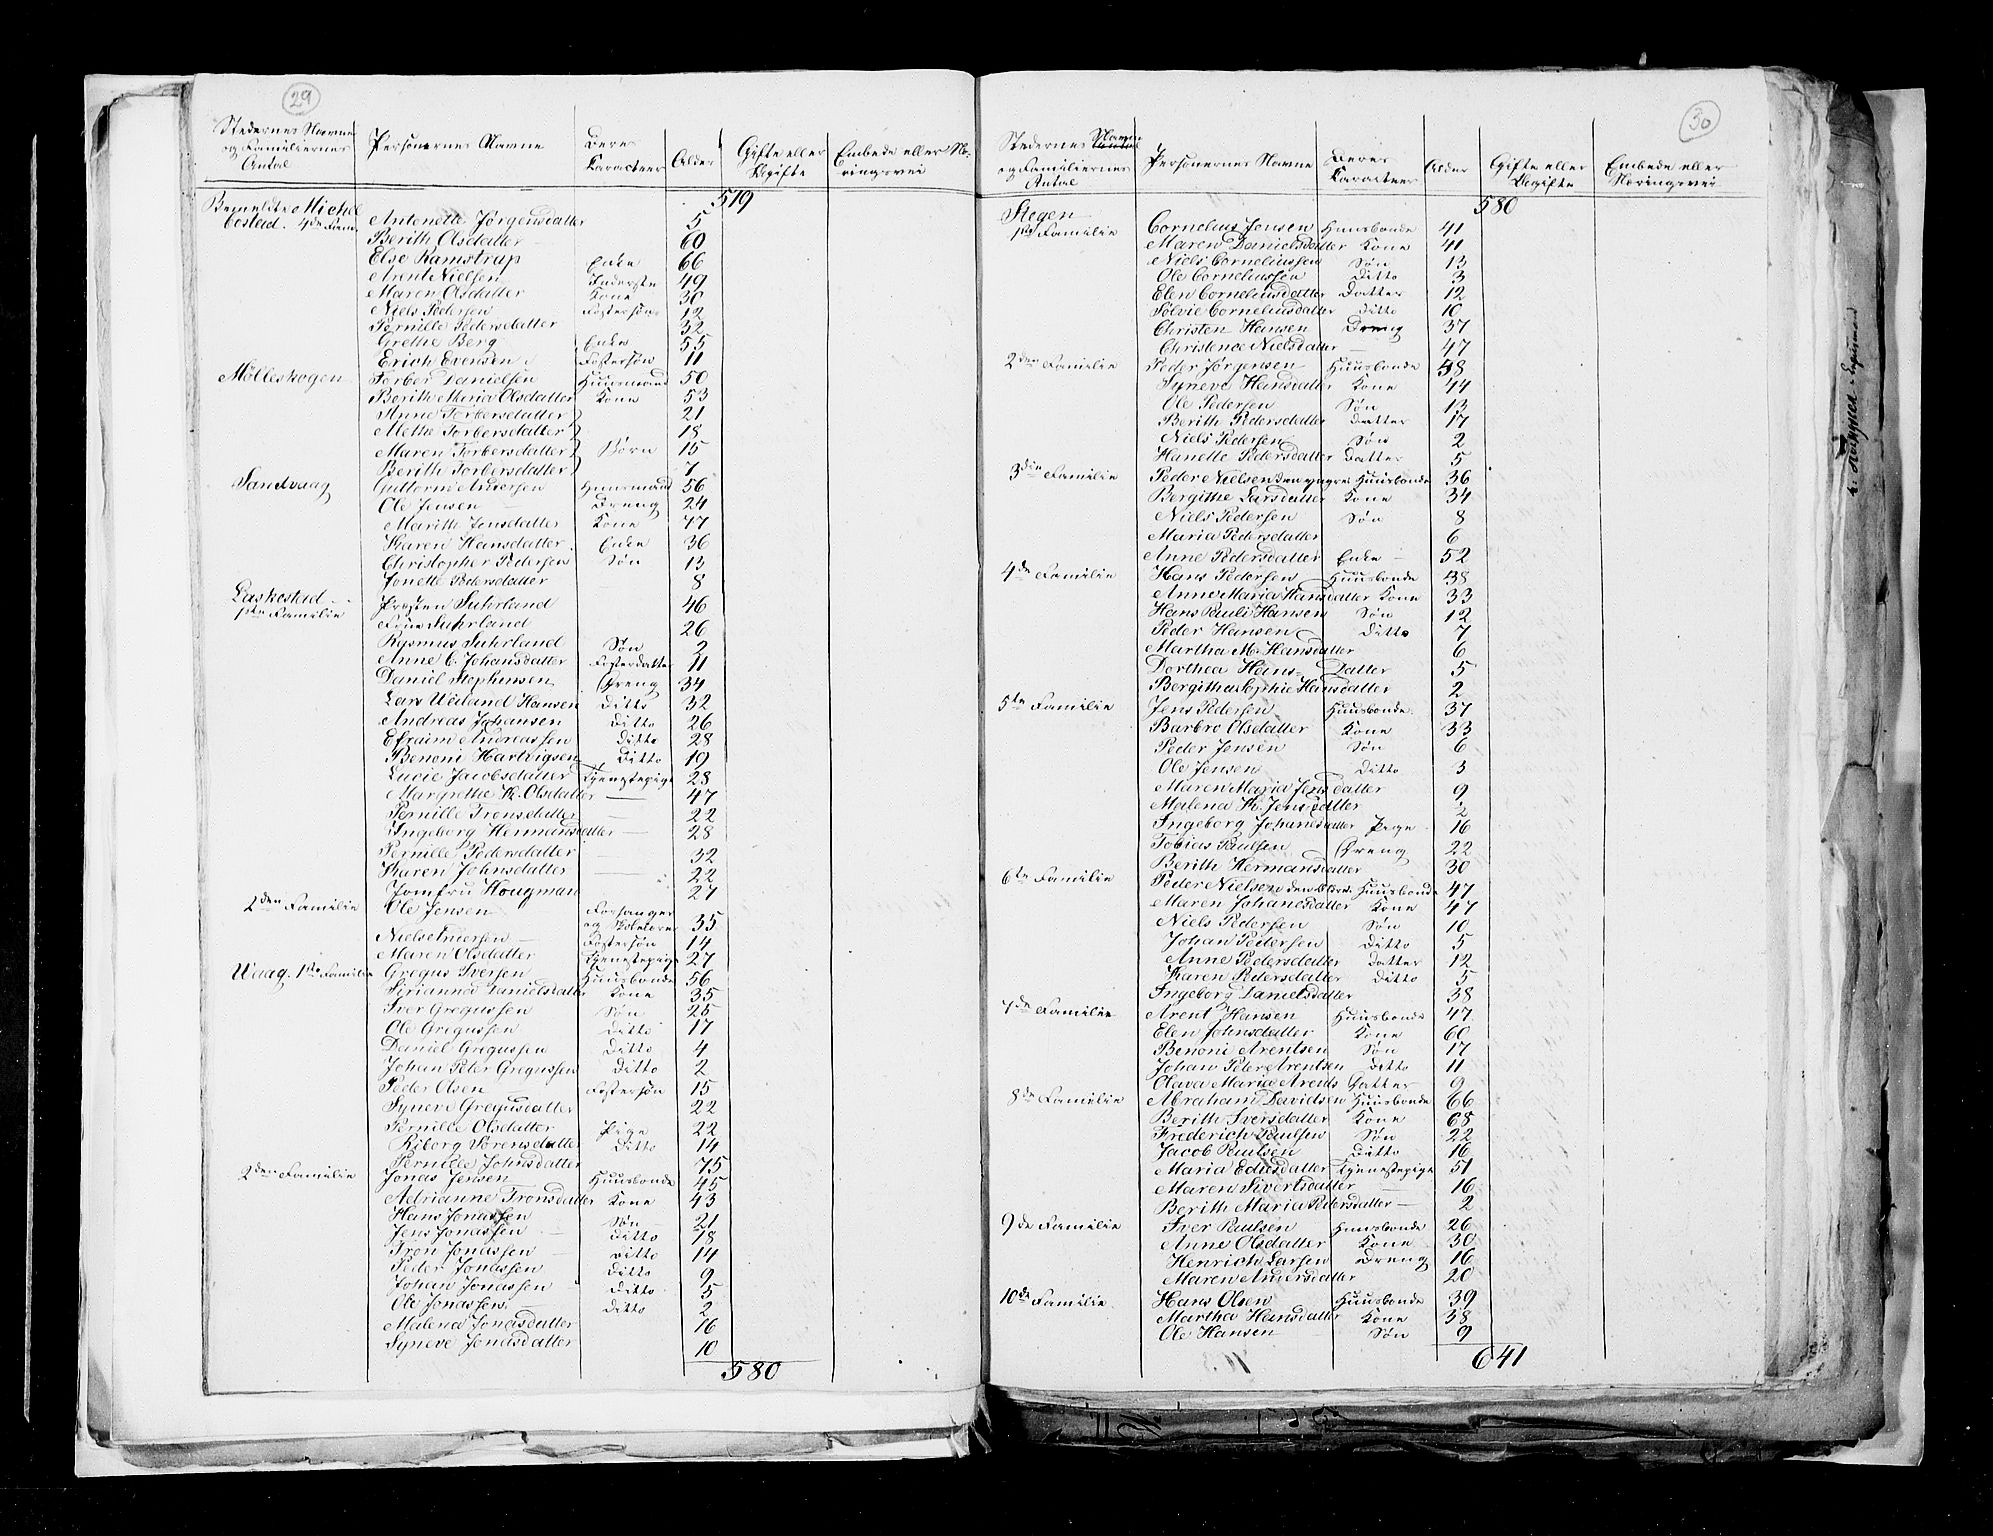 29
Stedernes Navne og Familiernes Antal | Personernes Navne | Deres Caracteer | Alder | Gifte eller Ugifte | Embede eller Næringsvei
519
Bemeldte Michel
bostad. 4de Fam. Antonette Jørgensdatter 5
Berith Olsdatter — 60
Else Kamstrup Enke 66
Arent Nielsen Inderste 49
Maren Olsdatter Kone 30
Niels Pedersen Fostersøn 12
Pernille Pedersdatter 32
Grethe Berg Enke 55
Erich Evensen Fostersøn 11
Mølleskogen Torber Danielsen Huusmand 50
Berith Maria Olsdatter Kone 53
Anne Torbersdatter 21
Methe Torbersdatter 18
Maren Torbersdatter Børn 15
Berith Torbersdatter 7
Sandvaag Guttorm Andersen Huusmand 56
Ole Jensen Dreng 24
Marith Jensdatter Kone 47
Karen Hansdatter Enke 36
Christopher Pedersen Søn 13
Jonette Pedersdatter 8
Laskestad
1ste Familie Præsten Suhrland 46
Frue Suhrland 26
Rasmus Suhrland Søn 2
Anne C. Johansdatter Fosterdatter 11
Daniel Stephensen Dreng 34
Lars Weiland Hansen Ditto 32
Andreas Johansen Ditto 26
Efraim Andreassen Ditto 28
Benoni Hartvigsen Ditto 19
Lucie Jacobsdatter Tjenestepige 28
Margrethe K. Olsdatter — 47
Pernille Tronsdatter — 22
Ingeborg Hermansdatter — 28
Pernille Pedersdatter — 32
Karen Johnsdatter — 22
Jomfru Hougman 27
2den Familie Ole Jensen Forsanger og Skolelærer 35
Niels Andersen Fostersøn 14
Maren Olsdatter Tjenestepige 27
Waag. 1ste Familie Gregus Iversen Huusbonde 56
Sirianna Danielsdatter Kone 35
Iver Gregussen Søn 25
Ole Gregussen Ditto 17
Daniel Gregussen Ditto 4
Johan Peter Gregussen Ditto 2
Peder Olsen Fostersøn 15
Syneve Gregusdatter 22
Pernille Olsdatter Pige 22
Riborg Sørensdatter Ditto 14
Pernille Johnsdatter 75
2den Familie Jonas Jensen Huusbonde 45
Adrianne Tronsdatter Kone 43
Hans Jonassen Søn 21
Jens Jonassen Ditto 18
Tron Jonassen Ditto 14
Peder Jonassen Ditto 9
Johan Jonassen Ditto 5
Ole Jonassen Ditto 2
Malena Jonasdatter 16
Syneve Jonasdatter 10
580
30
Stedernes Navne og Familiernes Antal | Personernes Navne | Deres Caracteer | Alder | Gifte eller Ugifte | Embede eller Næringsvei
580
Stegen
1ste Familie Cornelius Jonsen Huusbonde 41
Maren Danielsdatter Kone 41
Niels Corneliussen Søn 13
Ole Corneliussen Ditto 3
Elen Corneliusdatter Datter 12
Sølvie Corneliusdatter Ditto 10
Christen Hansen Dreng 37
Christence Nielsdatter — 47
2den Familie Peder Jørgensen Huusbonde 38
Syneve Hansdatter Kone 44
Ole Pedersen Søn 13
Berith Pedersdatter Datter 17
Niels Pedersen Søn 2
Hanette Pedersdatter Datter 5
3die Familie Peder Nielsen den yngre Huusbonde 36
Bergithe Larsdatter Kone 34
Niels Pedersen Søn 8
Maria Pedersdatter 6
Anne Pedersdatter Enke 52
4de Familie Hans Pedersen Huusbonde 38
Anne Maria Hansdatter Kone 33
Hans Pauli Hansen Søn 12
Peder Hansen Ditto 7
Martha M. Hansdatter 6
Dorthea Hans- Datter 5
Bergitha Sophie Hansdatter 2
5te Familie Jens Pedersen Huusbonde 37
Barbro Olsdatter Kone 33
Peder Jensen Søn 6
Ole Jensen Ditto 3
Maren Maria Jensdatter 9
Malena K. Jensdatter 2
Ingeborg Johannesdatter Pige 16
Tobias Paulsen Dreng 22
Berith Hermansdatter 30
6te Familie Peder Nielsen den eldre Huusbonde 47
Maren Johannesdatter Kone 47
Niels Pedersen Søn 10
Johan Pedersen Ditto 5
Anne Pedersdatter Datter 12
Karen Pedersdatter Ditto 5
Ingeborg Danielsdatter 38
7de Familie Arent Hansen Huusbonde 47
Elen Johnsdatter Kone 60
Benoni Arentsen Søn 17
Johan Peter Arentsen Ditto 11
Olava Maria Arents Datter 9
8de Familie Abraham Davidsen Huusbonde 66
Berith Iversdatter Kone 68
Friderich Paulsen Søn 22
Jacob Paulsen Ditto 16
Maria Edisdatter Tjenestepige 51
Maren Sivertsdatter — 16
Berith Maria Pedersdatter — 2
9de Familie Iver Paulsen Huusbonde 26
Anne Olsdatter Kone 30
Henrich Larsen Dreng 16
Maren Andersdatter 20
10de Familie Hans Olsen Huusbonde 39
Martha Hansdatter Kone 38
Ole Hansen Søn 9
641